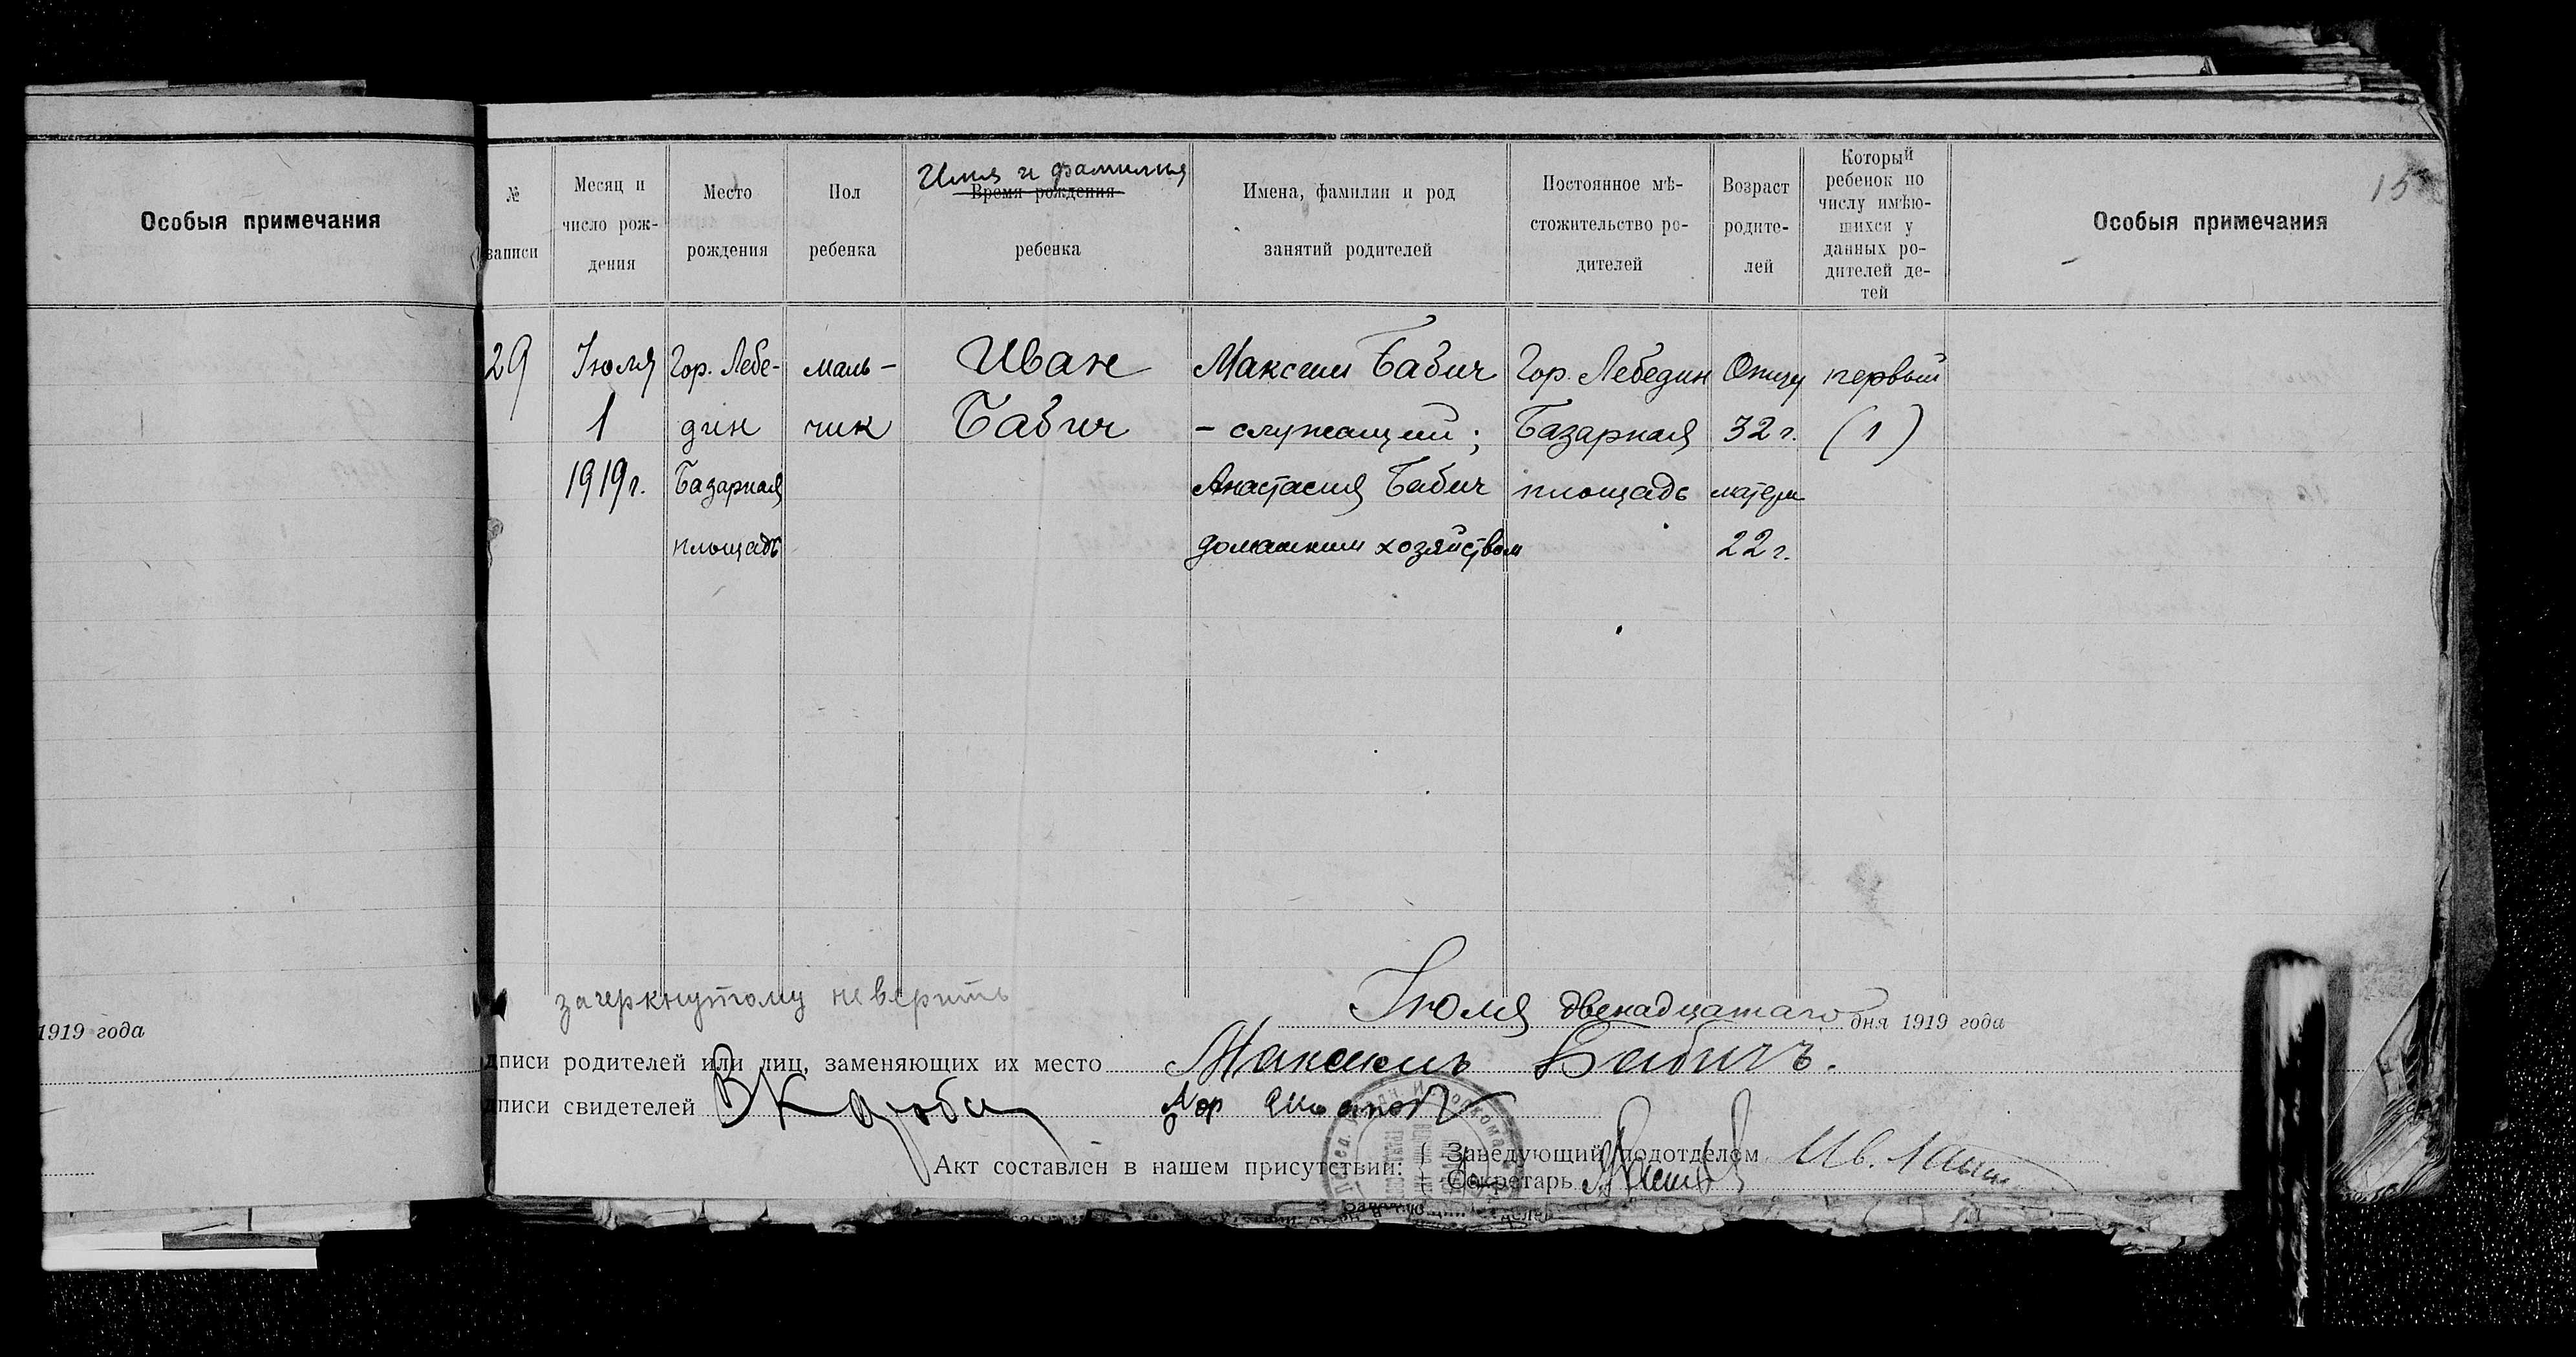 Особыя примечания
1919 года
15
№ записи
Месяц и число рождения
Место рождения
Пол ребенка
Имя и фамилия
Время рождения ребенка
Имена, фамилии и род занятий родителей
Постоянное мѣстожительство родителей
Возраст родителей
Который ребенок по числу имѣющихся у данных родителей детей
Особыя примечания
29 Июля Гор. Лебе- маль- Иван Максим Бабич Гор. Лебедин Отцу первый
1 дин чик Бабич - служащий; Базарная 32 г. (1)
1919 г. Базарная Анастасия Бабич площадь матери
площадь домашним хозяйством 22 г.
зачеркнутому не верить
Июля двенадцатаго дня 1919 года
дписи родителей или лиц, заменяющих их место Максимъ Бабичъ.
дписи свидетелей
Акт составлен в нашем присутствии:
Заведующий подотделом Ив.
Секретарь